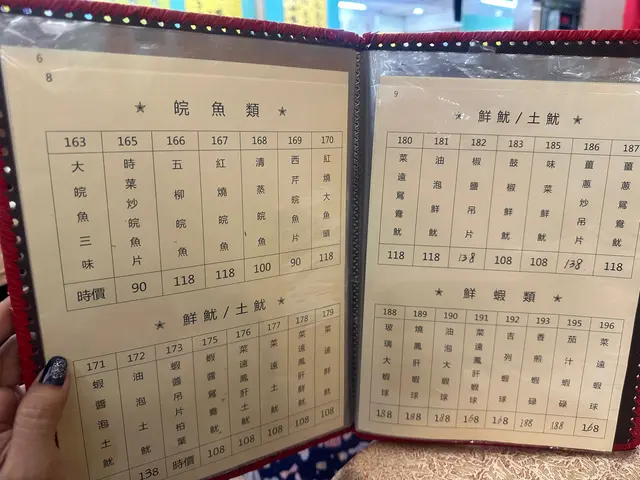 6
8
★ 皖魚類 ★
163 165 166 167 168 169 170
大皖魚三味
時菜炒皖魚片
五柳皖魚
紅燒皖魚
清蒸皖魚
西芹皖魚片
紅燒大魚頭
時價 90 118 118 100 90 118
★ 鮮魷/土魷 ★
171 172 173 175 176 177 178 179
蝦醬泡土魷
油泡土魷
蝦醬吊片柏葉
蝦醬鴛鴦魷
菜遠鳳肝土魷
菜遠土魷
菜遠鳳肝鮮魷
菜遠鮮魷
138 時價 108 108 108 108 108
9
★ 鮮魷/土魷 ★
180 181 182 183 185 186 187
菜遠鴛鴦魷
油泡鮮魷
椒鹽吊片
鼓椒鮮魷
味菜鮮魷
薑蔥炒吊片
薑蔥鴛鴦魷
118 118 138 108 108 138 118
★ 鮮蝦類 ★
188 189 190 191 192 193 195 196
玻璃大蝦球
燒鳳肝蝦球
油泡大蝦球
菜遠鳳肝蝦球
吉列蝦球
香煎蝦碌
茄汁蝦碌
菜遠蝦球
188 188 188 168 168 188 188 168